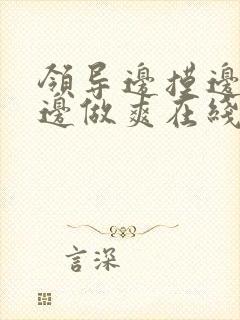 領导邊摸邊
邊做爽在綫
言深